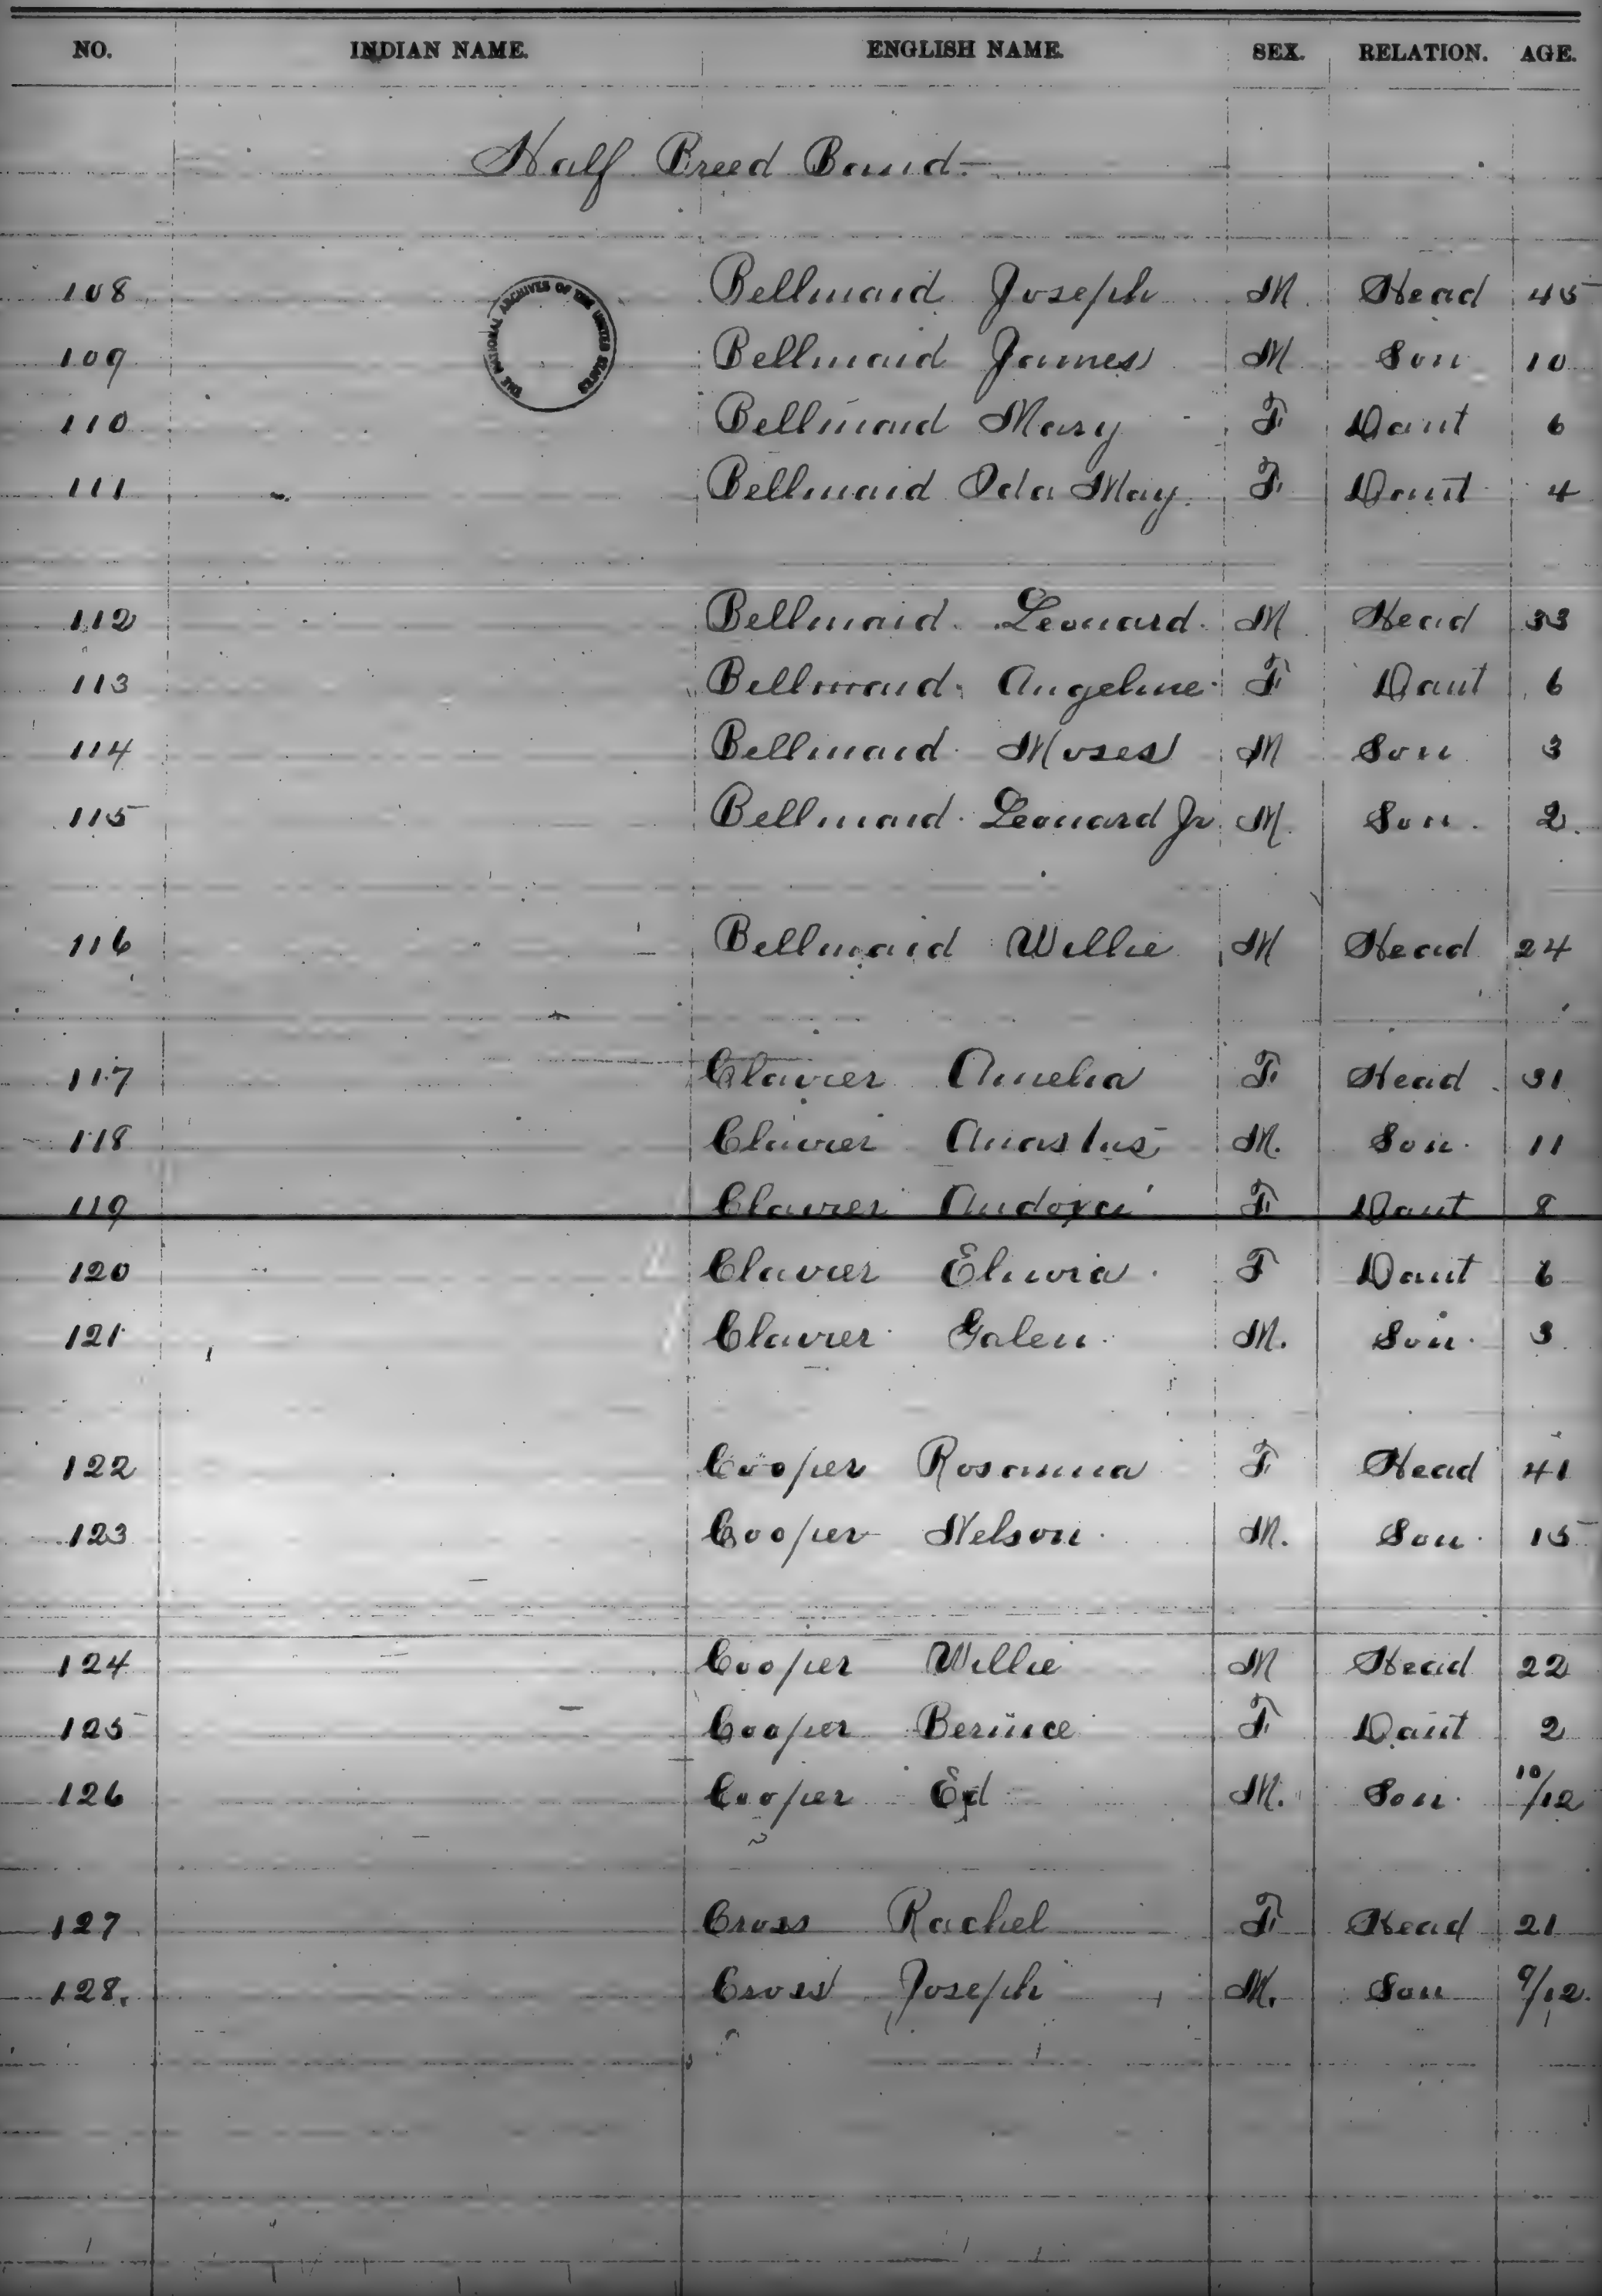 NO. INDIAN NAME. ENGLISH NAME. SEX. RELATION. AGE.
Half Breed Band
THE NATIONAL ARCHIVES OF THE UNITED STATES
108 Bellmard Joseph M Head 45
109 Bellmard James M Son 10
110 Bellmard Mary F Daut 6
111 Bellmard Ida May F Daut 4
112 Bellmard Leonard M Head 33
113 Bellmard Angeline F Daut 6
114 Bellmard Moses M Son 3
115 Bellmard Leonard Jr M. Son 2
116 Bellmard Willie M Head 24
117 Clavier Amelia F Head 31
118 Clavier M. Son 11
119 Clavier F Daut 8
120 Clavier F Daut 6
121 Clavier Galen M. Son 3
122 Cooper Rosanna F Head 41
123 Cooper Nelson M. Son 15
124 Cooper Willie M Head 22
125 Cooper Bernice F Daut 2
126 Cooper Ed M. Son 10/12
127 Cross Rachel F Head 21
128. Cross Joseph M. Son 9/12